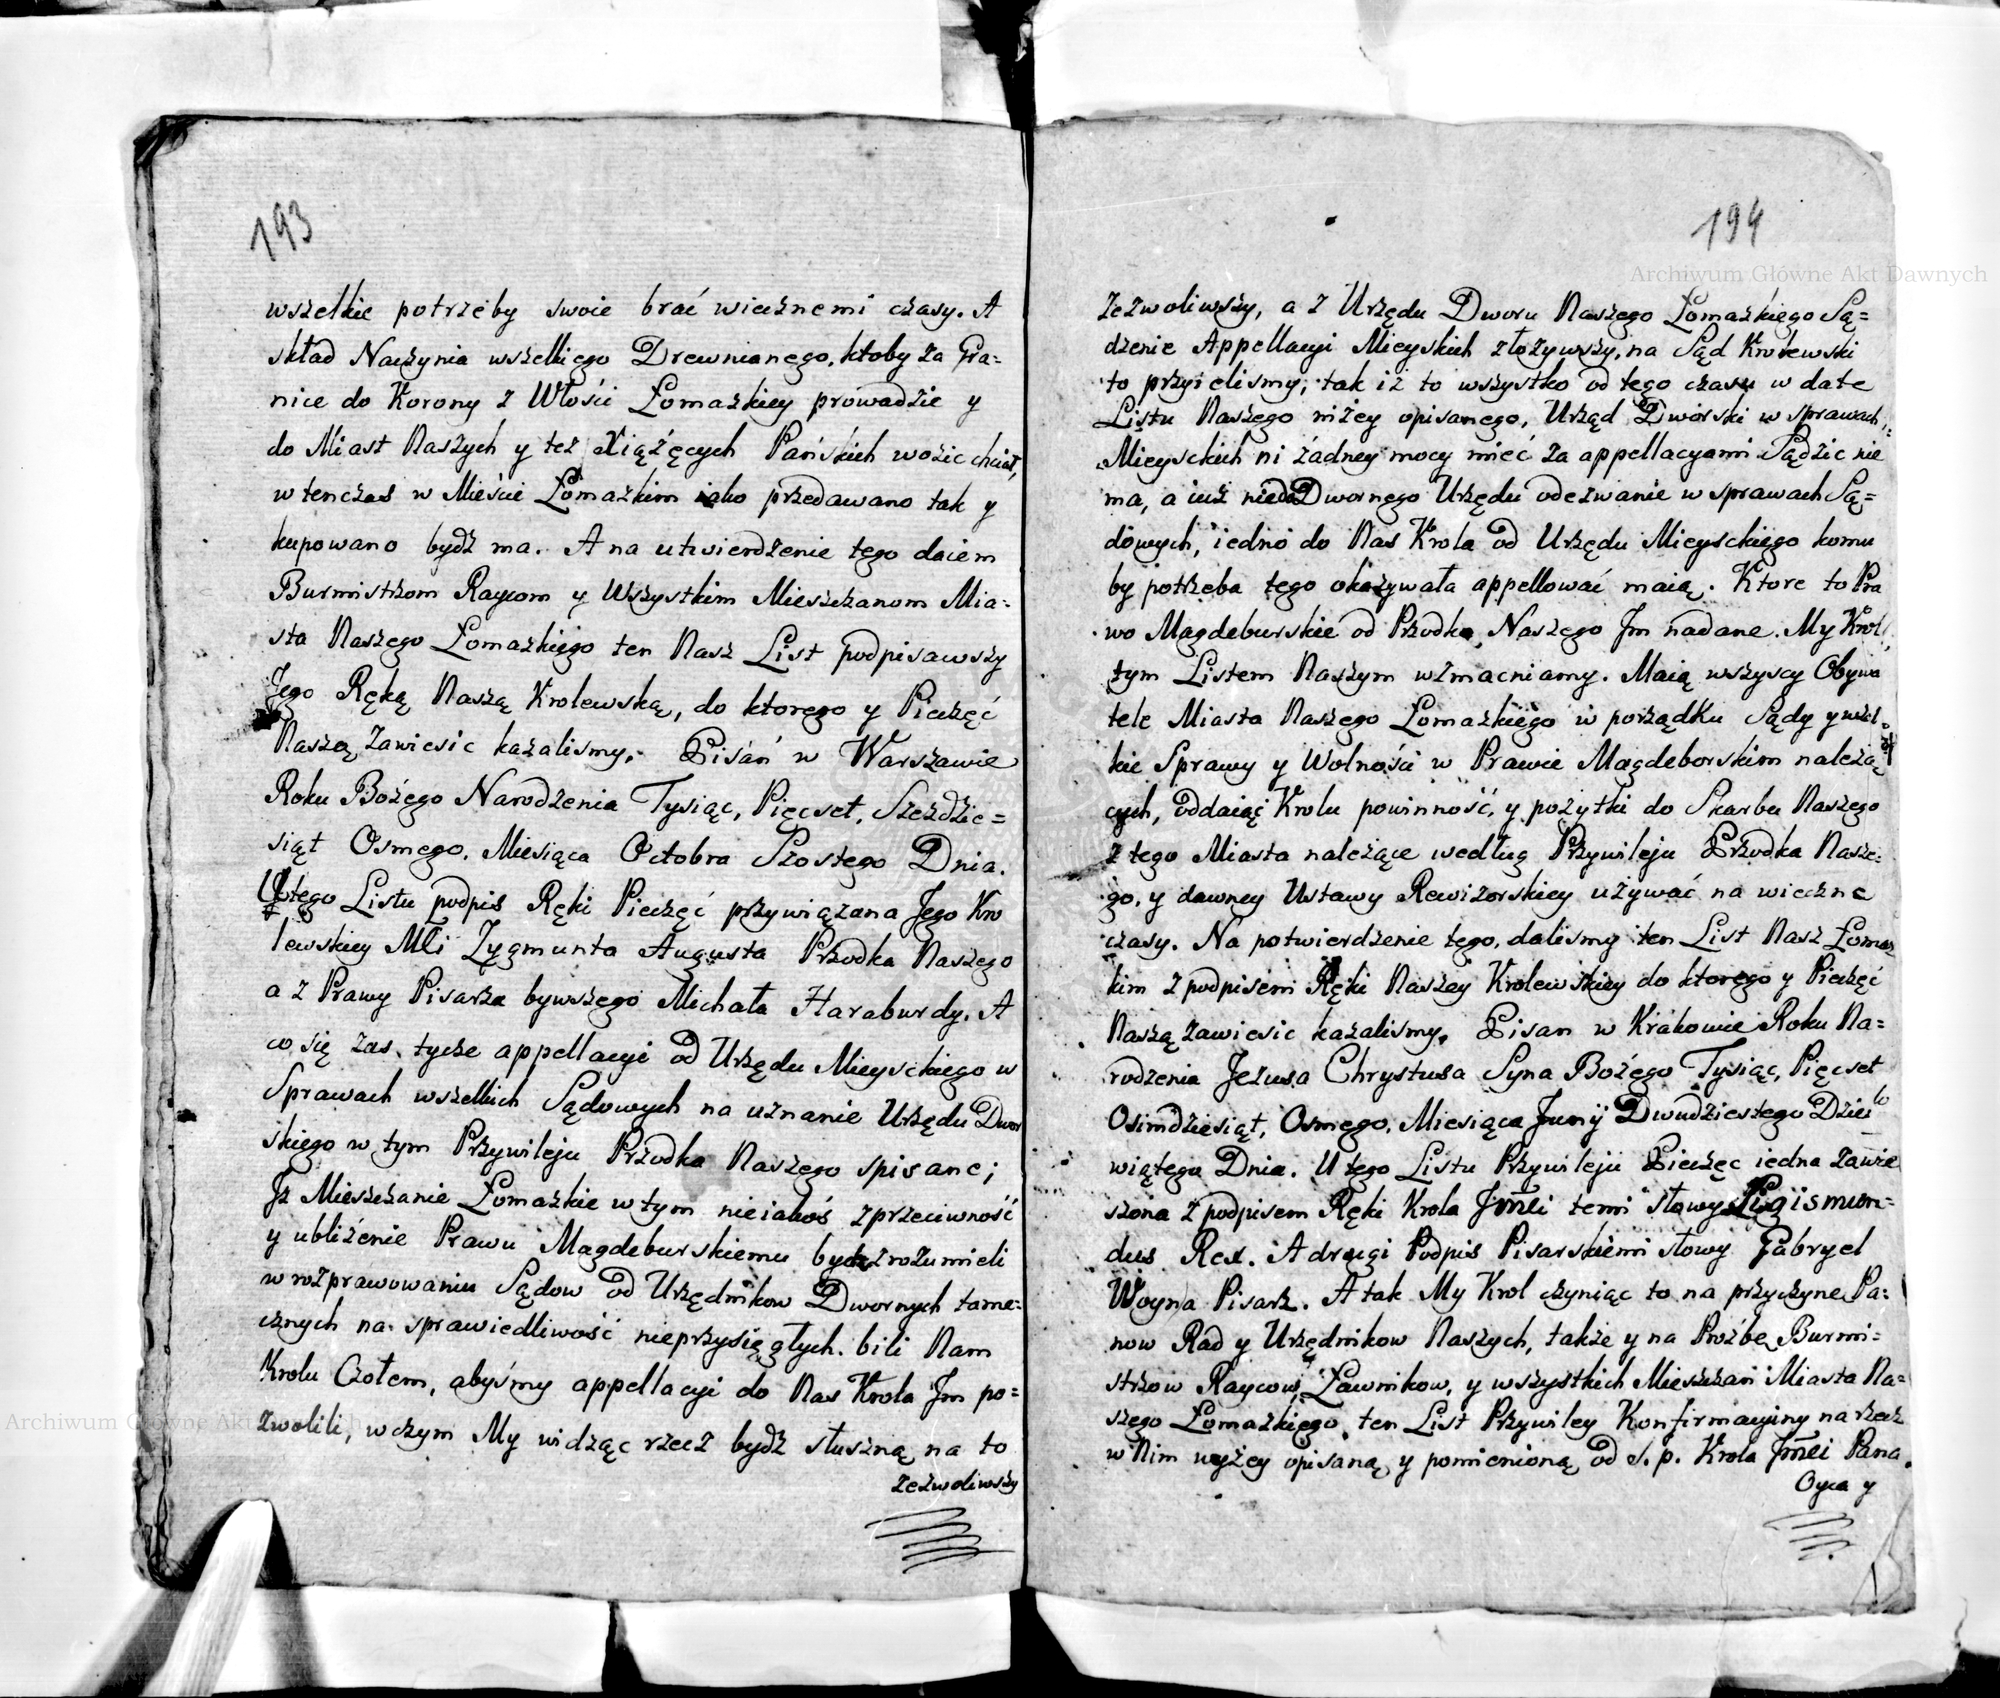 193
wszelkie potrzeby swoie brać wiecznemi czasy. A
skład Naczynia wszelkiego Drewnianego, ktoby za Gra=
nice do Korony z Włości Łomazkiey prowadzie y
do Miast Naszych y też Xiążęcych Pańskich wozic chciał,
wtenczas w Mieście Łomazkim iako przedawano tak y
kupowano bydź ma. A na utwierdzenie tego daiem
Burmistrzom Raycom y Wszystkim Mieszczanom Mia=
sta Naszego Łomazkiego ten Nasz List podpisawszy
Jego Ręką Naszą Krolewską, do ktorego y Pieczęć
Naszą zawiesic kazalismy. Pisań w Warszawie
Roku Bożego Narodzenia Tysiąc, Pięcset, Szezdzie=
siąt Osmego, Miesiąca Octobra Szostego Dnia.
U tego Listu podpis Ręki Pieczęć przywiązana Jego Kro
lewskiey Mći Zygmunta Augusta Przodka Naszego
a z Prawy Pisarza bywszego Michała Haraburdy. A
co się zas tycze appellacyi od Urzędu Mieyskiego w
Sprawach wszelkich Sądowych na uznanie Urzędu Dwor
skiego w tym Przywileju Przodka Naszego spisane;
Jż Mieszczanie Łomazkie w tym nieiakoś zprzeciwność
y ubliżenie Prawu Magdeburskiemu bydz zrozumieli
w rozprawowaniu Sądow od Urzędnikow Dwornych tame=
cznych na sprawiedliwość nieprzysięgłych. bili Nam
Krolu Czołem, abyśmy appellacyi do Nas Krola Jm po=
zwolili, w czym My widząc rzecz bydź słuszną na to
zezwoliwszy
194
Zezwoliwszy, a z Urzędu Dworu Naszego Łomazkiego Są=
dzenie Appellacyi Mieyskich złożywszy, na Sąd Krolewski
to przyielismy, tak iż to wszystko od tego czasu w date
Listu Naszego niżey opisanego, Urząd Dworski w sprawach
Mieysckich ni żadney mocy mieć za appellacyami Sądzic nie
ma, a iuż nie do Dwornego Urzędu odezwanie w sprawach Są=
dowych, iedno do Nas Krola od Urzędu Mieysckiego komu
by potrzeba tego okazywała appellować maią. Ktore to Pra
wo Magdeburskie od Przodka Naszego Jm nadane. My Krol
tym Listem Naszym wzmacniamy. Maią wszyscy Obywa
tele Miasta Naszego Łomazkiego w porządku Sądy y wszel=
kie Sprawy y Wolności w Prawie Magdeborskim należą
cych, oddaiąc Krolu powinność, y pożytki do Skarbu Naszego
z tego Miasta należące według Przywileju Przodka Nasze=
go, y dawney Ustawy Rewizorskiey używać na wieczne
czasy. Na potwierdzenie tego, dalismy ten List Nasz Łomaz
kim z podpisem Ręki Naszey Krolewskiey do ktorego y Pieczęć
Naszą zawiesic kazalismy. Pisan w Krakowie Roku Na=
rodzenia Jezusa Chrystusa Syna Bożego Tysiąc, Pięcset
Osimdziesiąt, Osmego, Miesiąca Junij Dwudziestego Dzie
wiątego Dnia. U tego Listu Przywileju Pieczęc iedna zawie
szona z podpisem Ręki Krola Jmći temi słowy Sigismun=
dus Rex. A drugi Podpis Pisarskiemi słowy Gabryel
Woyna Pisarz. A tak My Krol czyniąc to na przyczynę Pa=
now Rad y Urzędnikow Naszych, także y na Proźbę Burmi=
strzow Raycow, Ławnikow, y wszystkich Mieszczan Miasta Na=
szego Łomazkiego ten List Przywiley Konfirmacyiny na rzecz
w Nim wyżey opisaną y pomienioną od S. p. Krola Jmći Pana
Oyca y
Archiwum Główne Akt Dawnych
Archiwum Główne Akt Dawnych